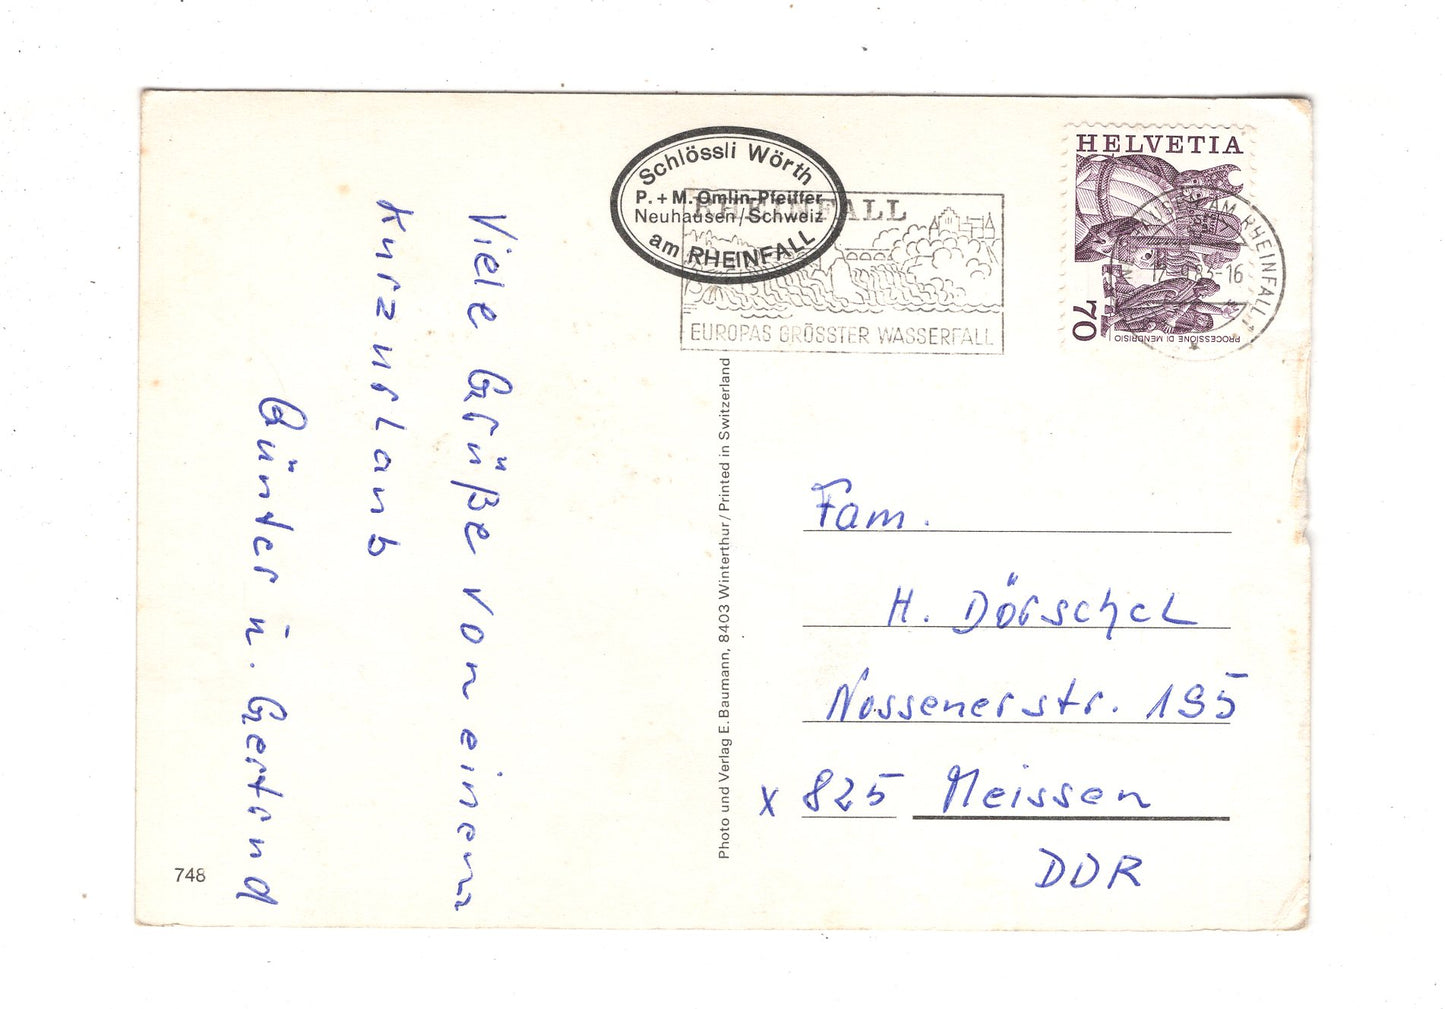 Viele Grüße von einem
Kurzurlaub
Günter u. Gertrud
748
Schlössli Wörth
P. + M. Omlin-Pfeiffer
Neuhausen/Schweiz
am RHEINFALL
RHEINFALL
EUROPAS GRÖSSTER WASSERFALL
HELVETIA
70
PROCESSIONE DI MENDRISIO
AM RHEINFALL 1
83-16
Photo und Verlag E. Baumann, 8403 Winterthur/Printed in Switzerland
Fam.
H. Dörschel
Nossenerstr. 195
x 825 Meissen
DDR